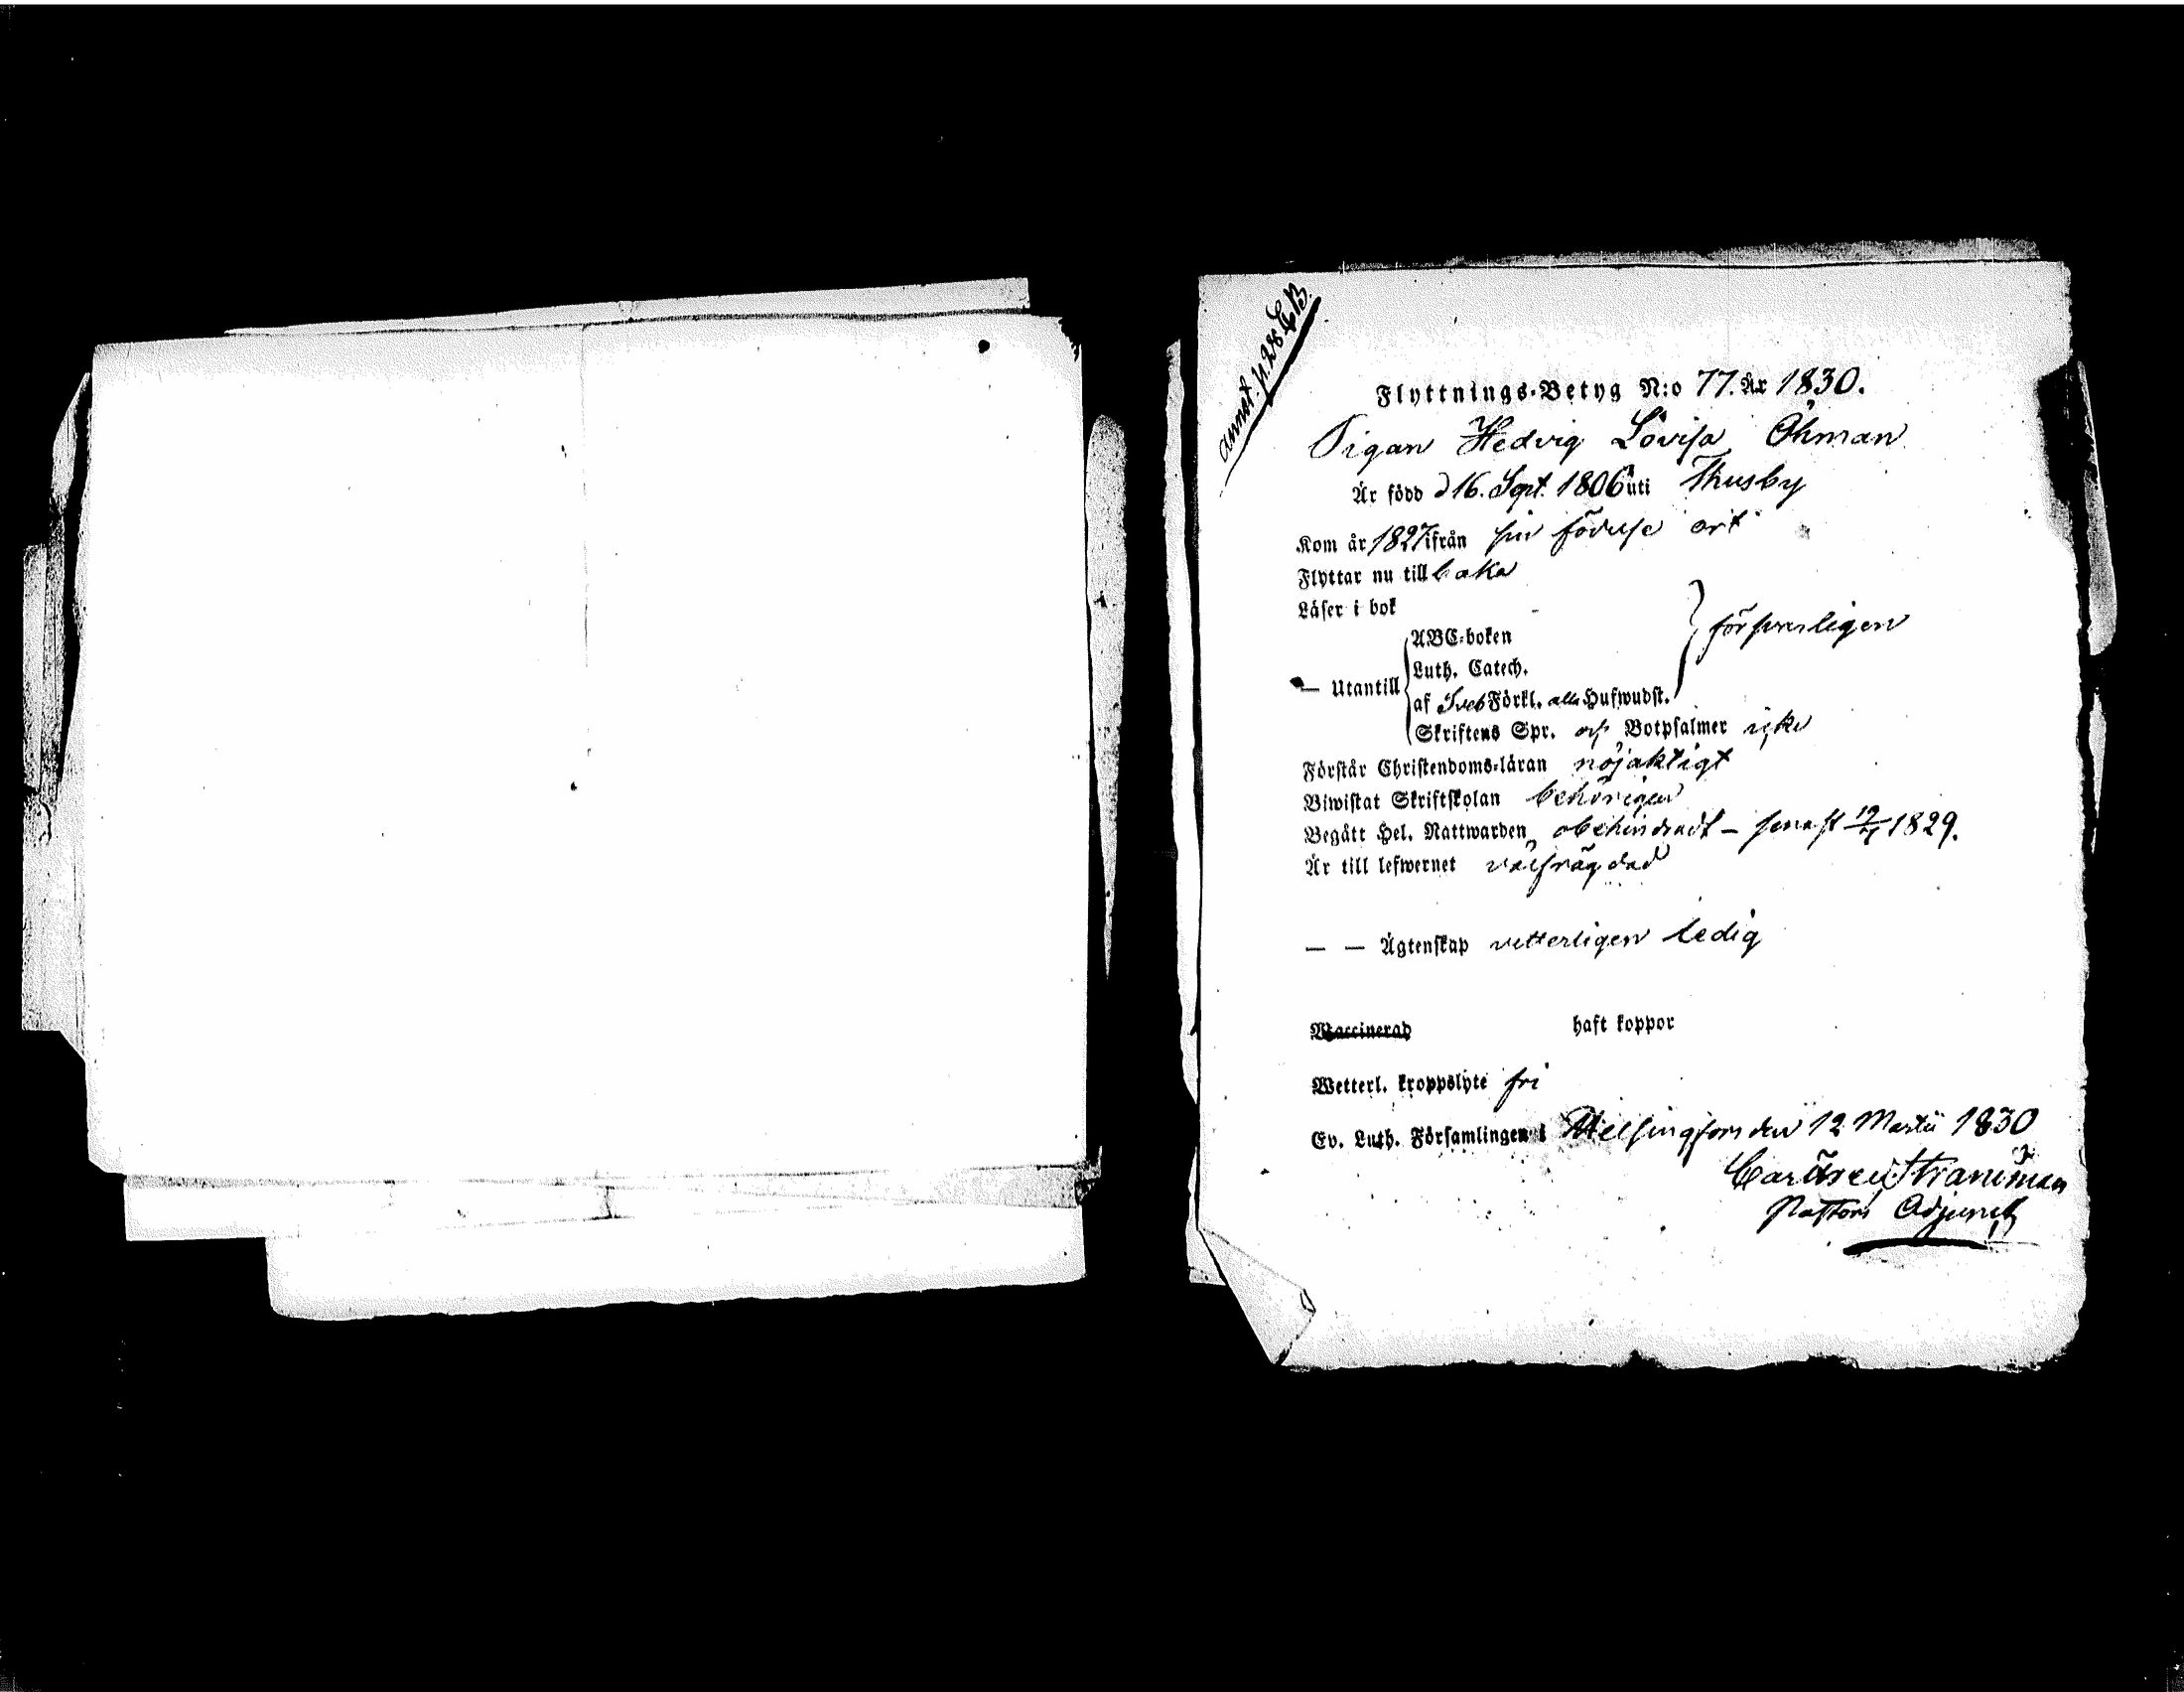 annot. p. 28 C B.
Flyttnings-Betyg N:o 77. År 1830.
Pigan Hedvig Lovisa Öhman
Är född d 16. Sept. 1806 uti Thusby
Kom år 1827 ifrån sin födelse ort
Flyttar nu tillbaka
Läser i bok
ABC-boken
försvarligen
Luth. Catech.
— Utantill
af Sveb Förkl. alla Hufwudst.
Skriftens Spr. och Botpsalmer icke
Förstår Christendoms-läran nöjaktigt
Biwistat Skriftskolan behörigen
Begått Hel. Nattwarden obehindradt – senast 1829.
Är till lefwernet välfrägdad
— — Ägtenskap vetterligen ledig
Waccinerad haft koppor
Wetterl. kroppslyte fri
Ev. Luth. Församlingen i Helsingfors den 12 Martii 1830
Carl
Pastors Adjunct